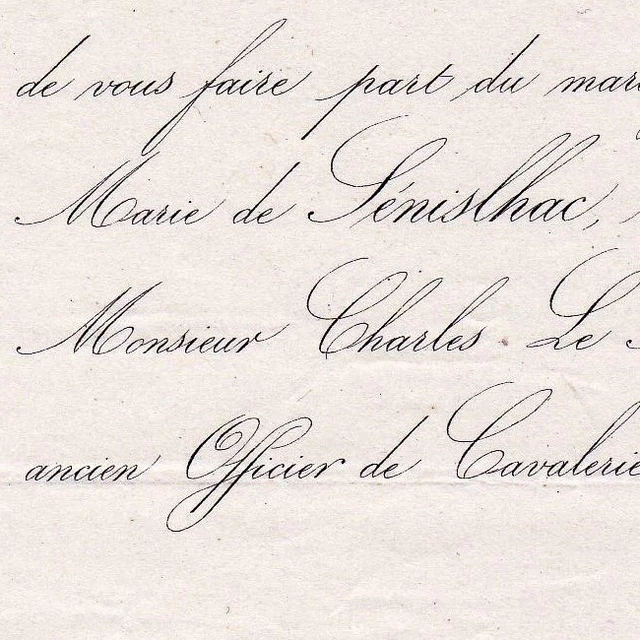 de vous faire part du mar
Marie de Sénislhac,
Monsieur Charles Le
ancien Officier de Cavalerie